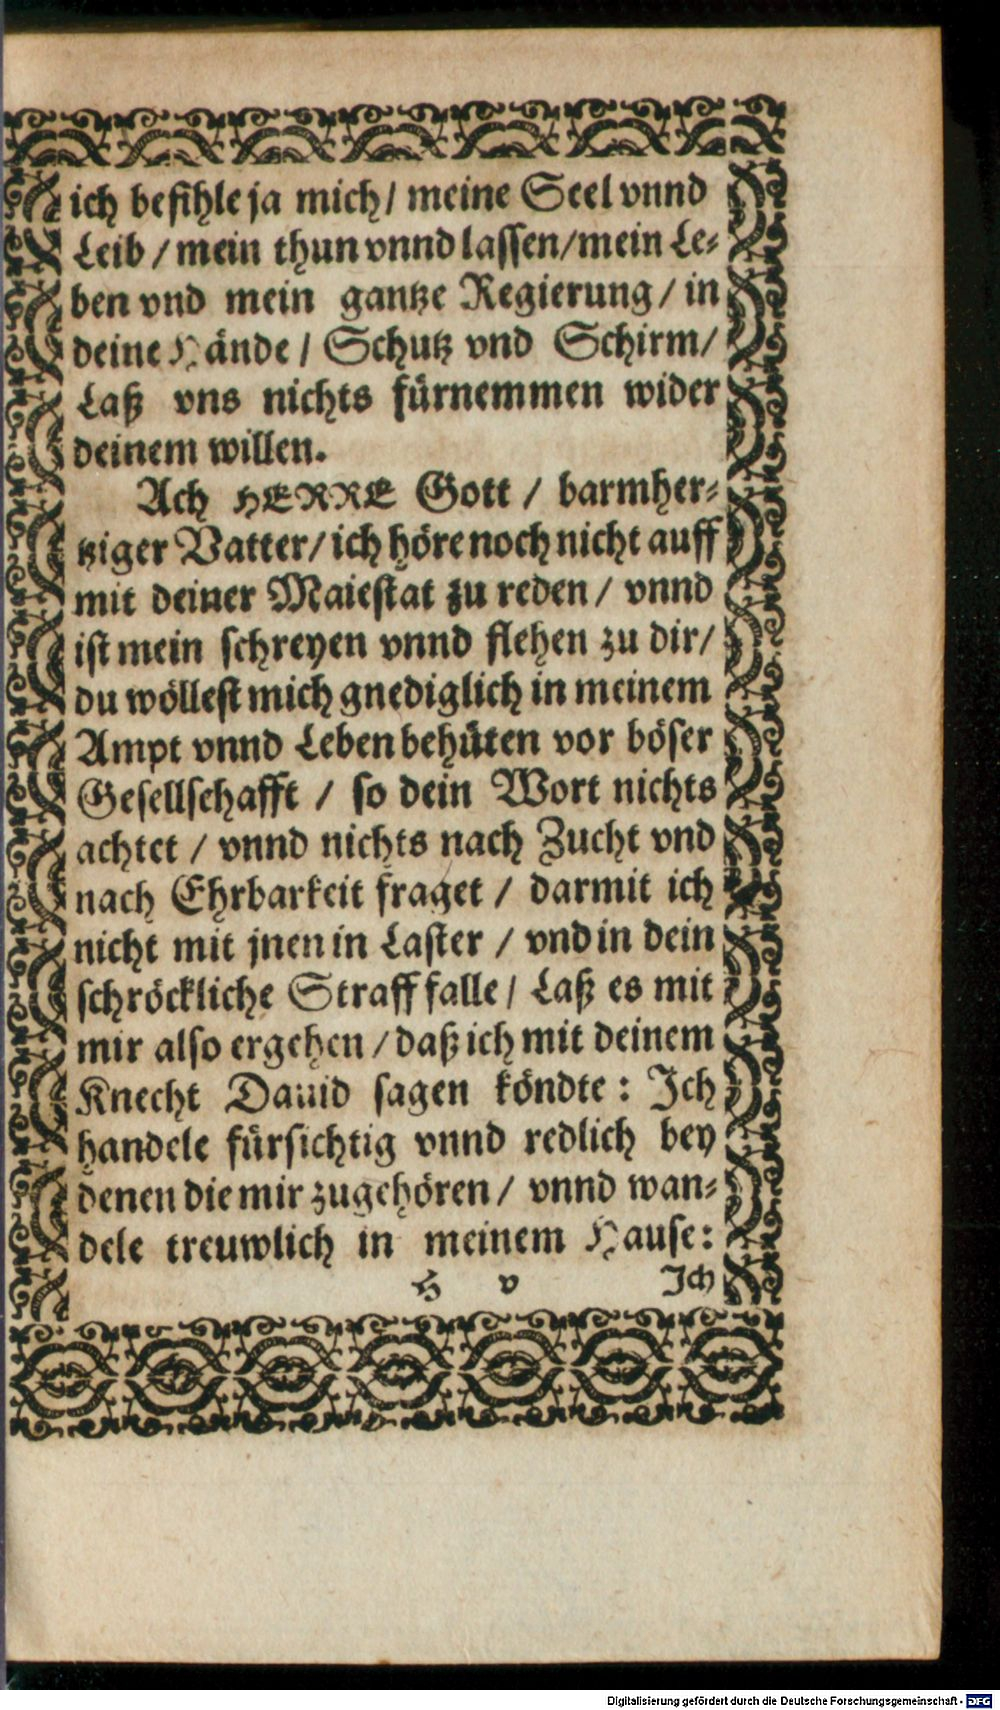 ich befihle ja mich/ meine Seel vnnd
Leib / mein thun vnnd lassen/mein Le⸗
ben vnd mein gantze Regierung / in
deine Hände / Schutz vnd Schirm/
Laß vns nichts fürnemmen wider
deinem willen.
Ach HERRE Gott / barmher⸗
tziger Vatter/ ich höre noch nicht auff
mit deiner Maiestat zu reden / vnnd
ist mein schreyen vnnd flehen zu dir/
du wöllest mich gnediglich in meinem
Ampt vnnd Leben behüten vor böser
Gesellschafft / so dein Wort nichts
achtet / vnnd nichts nach Zucht vnd
nach Ehrbarkeit fraget / darmit ich
nicht mit jnen in Laster / vnd in dein
schröckliche Straff falle / Laß es mit
mir also ergehen / daß ich mit deinem
Knecht Dauid sagen köndte : Ich
handele fürsichtig vnnd redlich bey
denen die mir zugehören / vnnd wan⸗
dele treuwlich in meinem Hause:
H v Ich
Digitalisierung gefördert durch die Deutsche Forschungsgemeinschaft - DFG